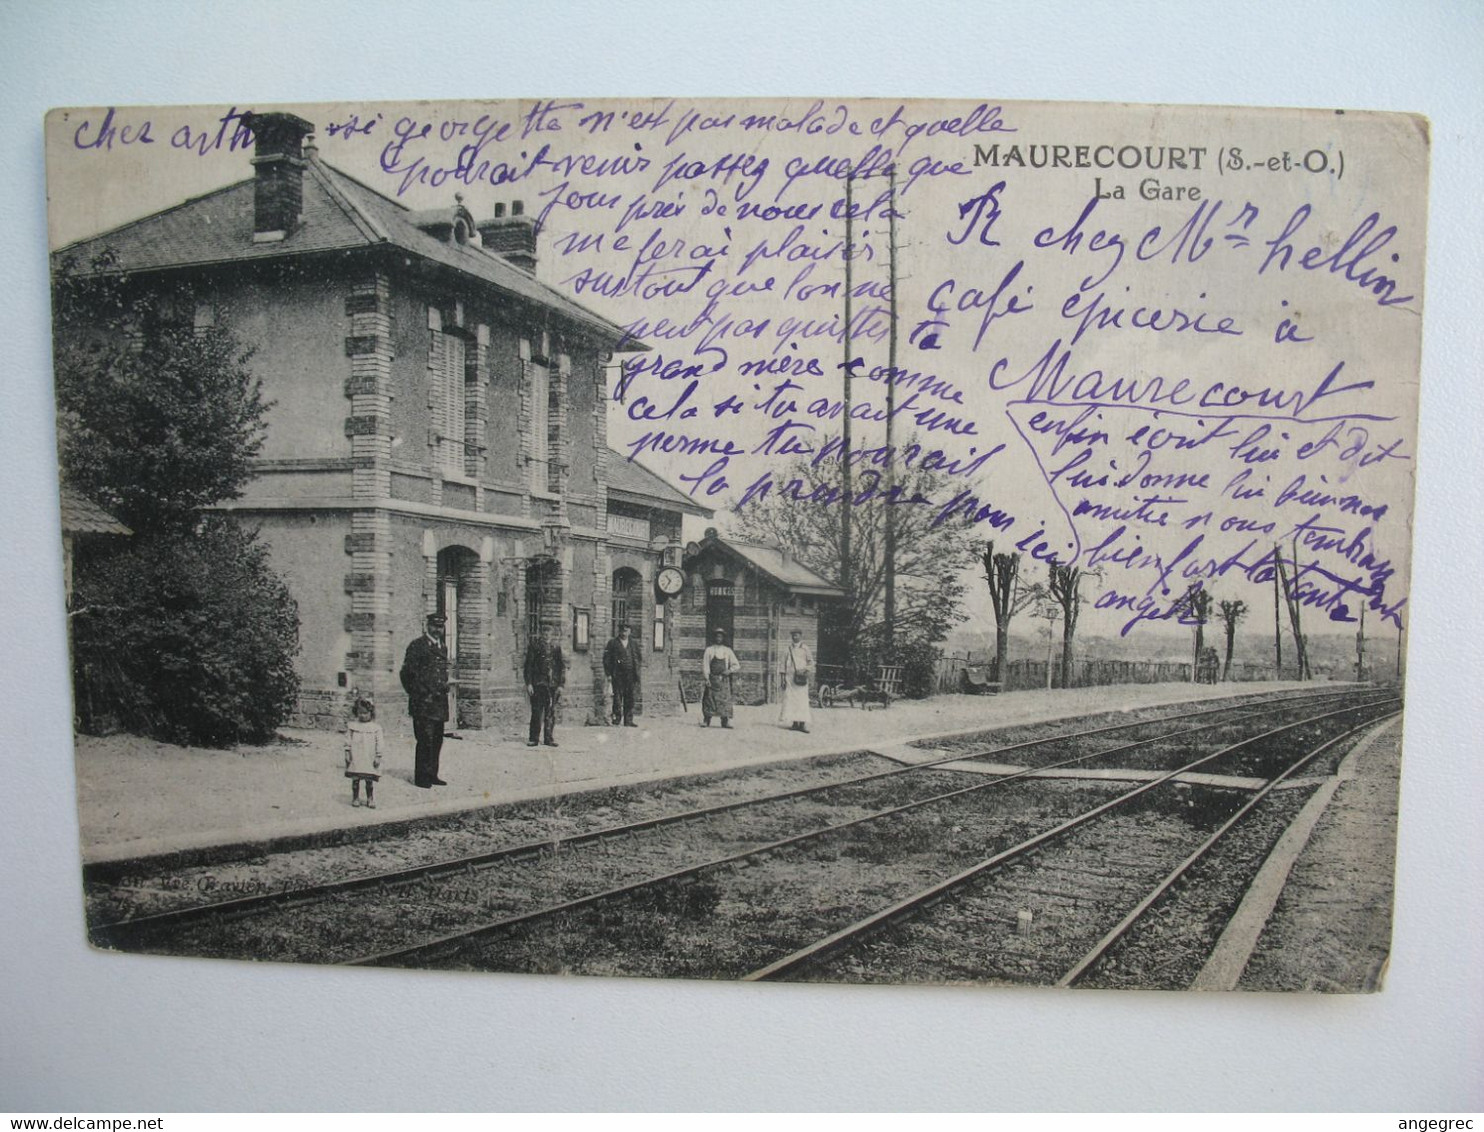 MAURECOURT (S.-et-O.)
La Gare
cher arthur si georgette n'est pas malade et quelle
pourait venir passez quelle que
jour près de nous cela
me ferai plaisir
surtout que lon ne
peut pas quitter ta
grand mère comme
cela si tu avait une
perme tu pourait
la prendre pour ici
R chez Mr hellin
café épicerie à
Maurecourt
enfin écrit lui et dit
lui donne lui bien nos
amitie nous tembrassent
bien fort ta tante
angèle
angegrec
delcampe.net